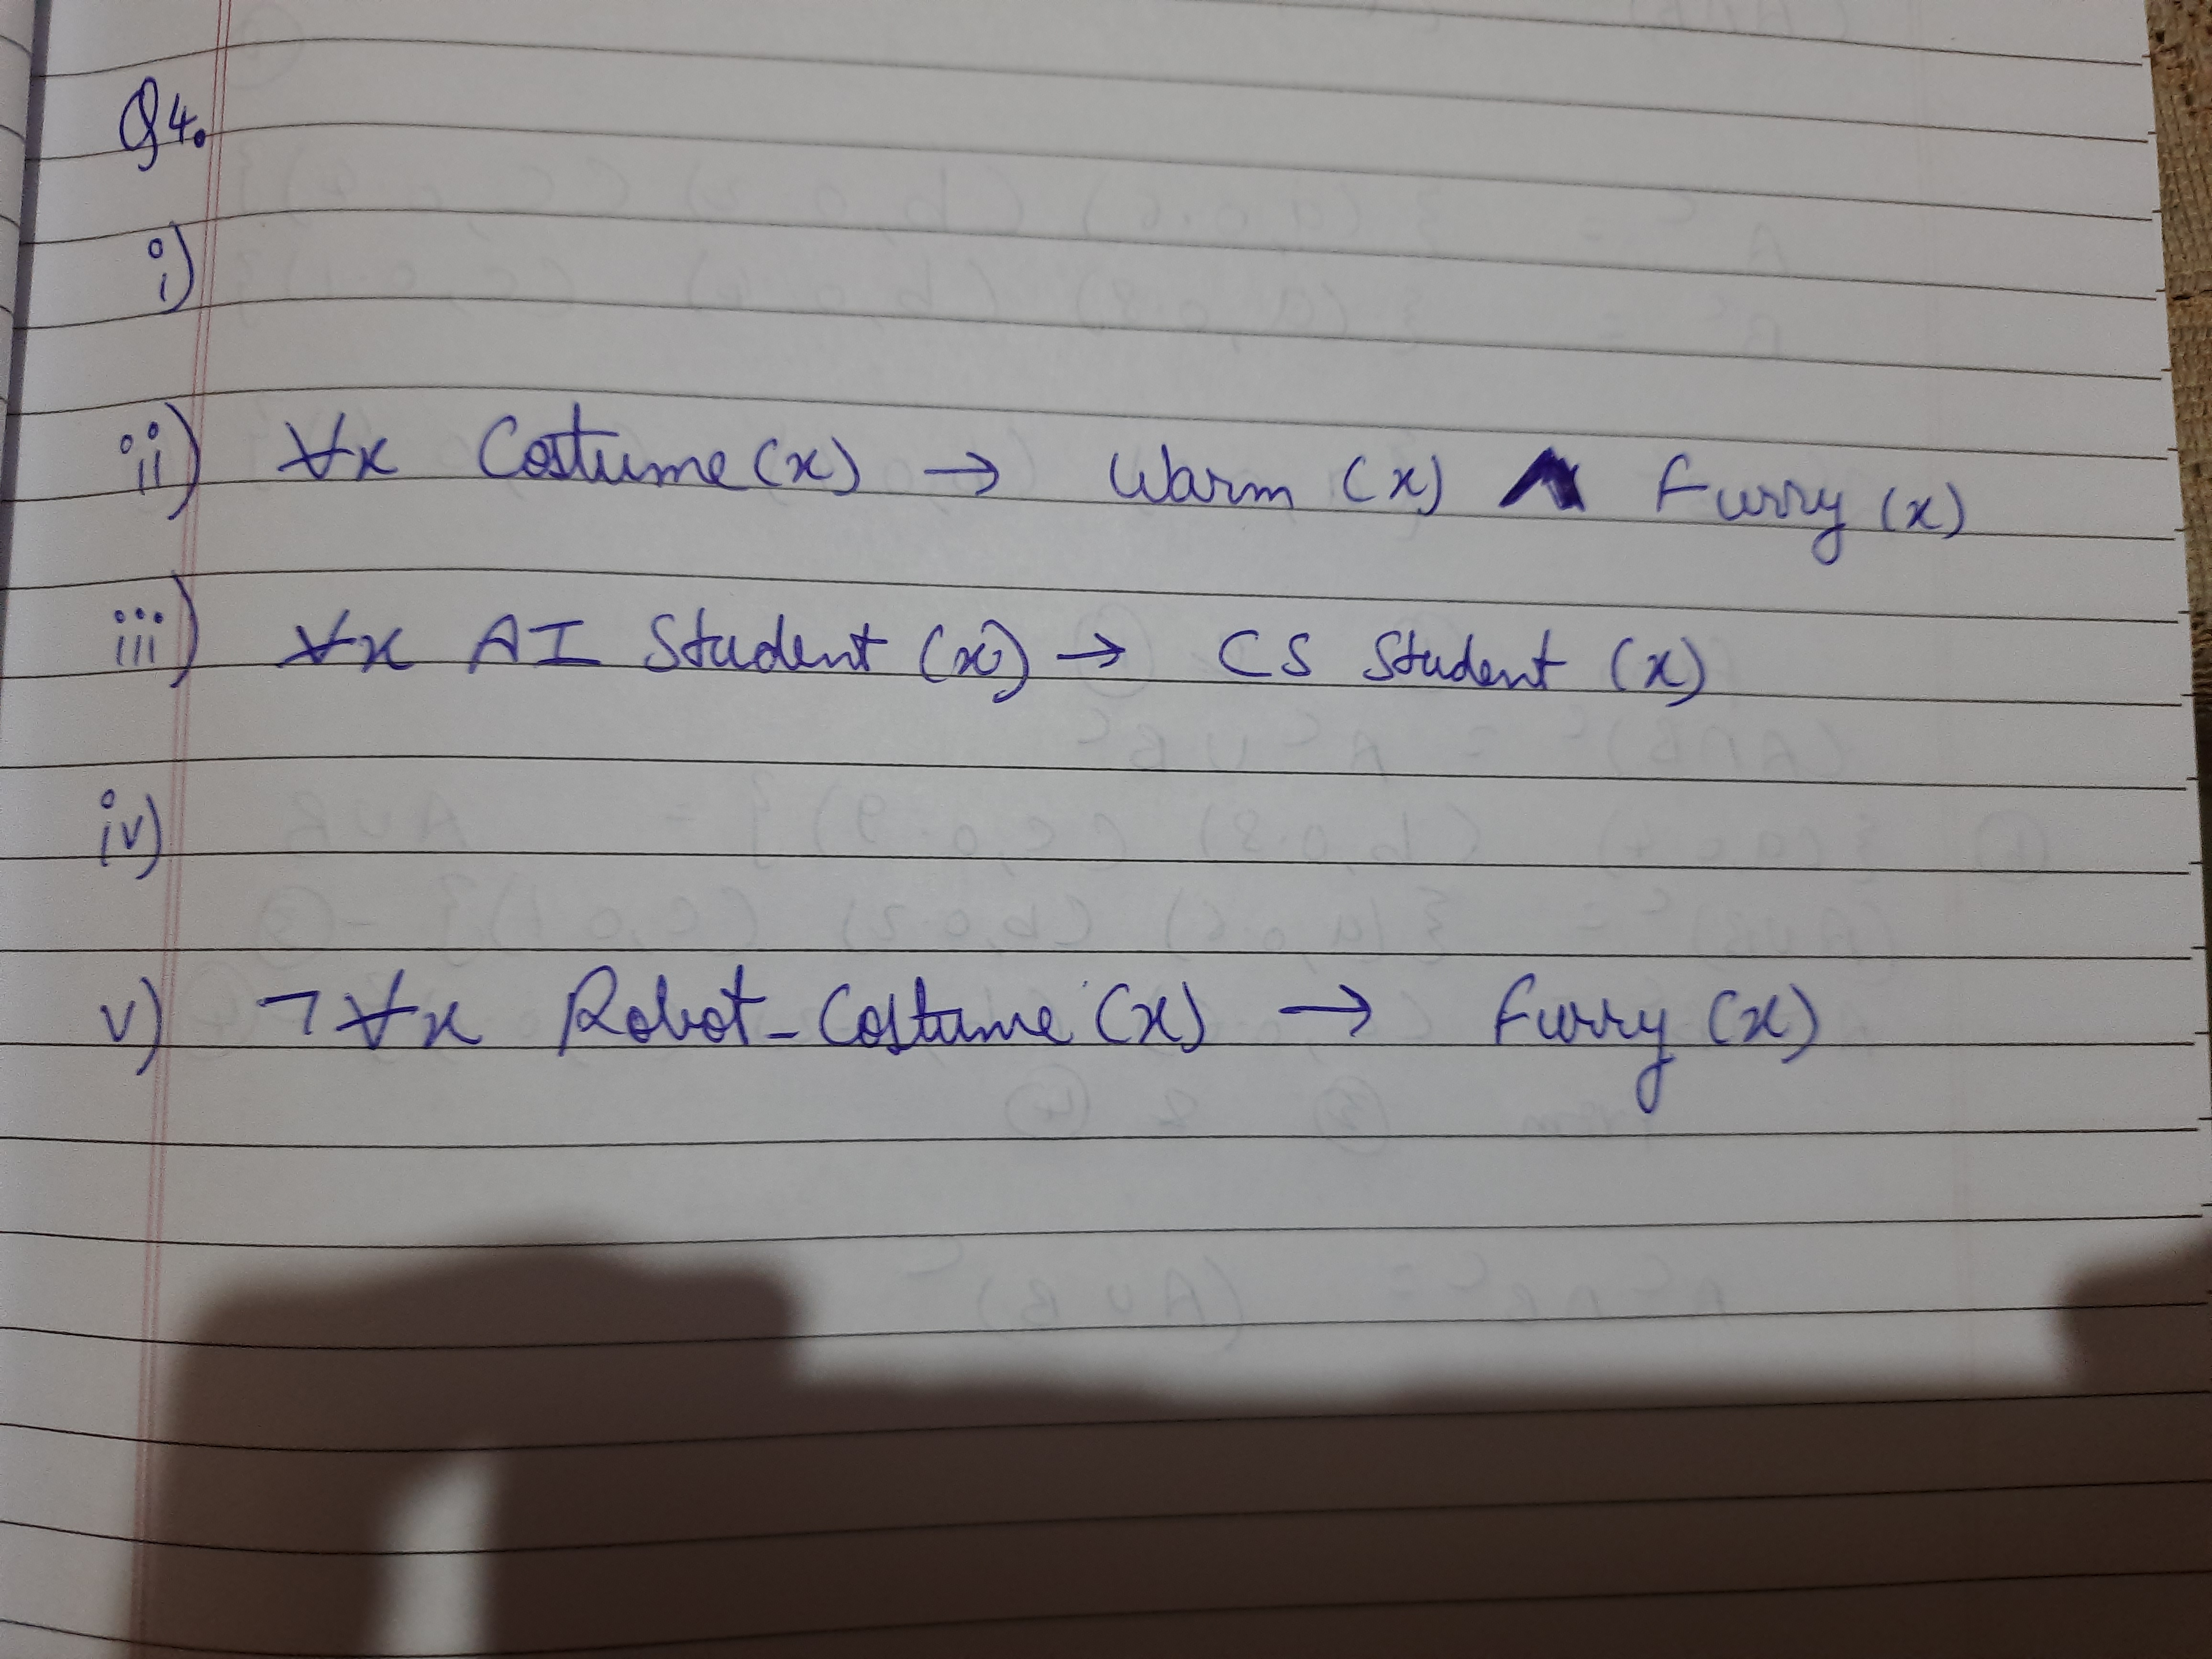 Q4.
i)
ii) ∀x Costume(x) → Warm (x) ∧ Furry (x)
iii) ∀x AI Student (x) → CS Student (x)
iv)
v) ¬∀x Robot-Costume (x) → Furry (x)